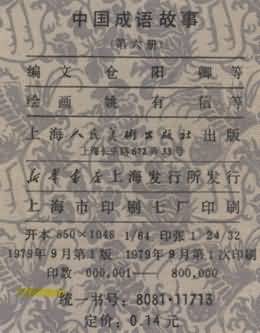 中国成语故事
（第六册）
编文 仓阳卿等
绘画 姚有信等
上海人民美术出版社出版
上海长乐路672弄33号
新华书店上海发行所发行
上海市印刷七厂印刷
开本 850×1046 1/64 印张 1 24/32
1979年9月第1版 1979年9月第1次印刷
印数 000,001—800,000
统一书号：8081·11713
定价：0.14元